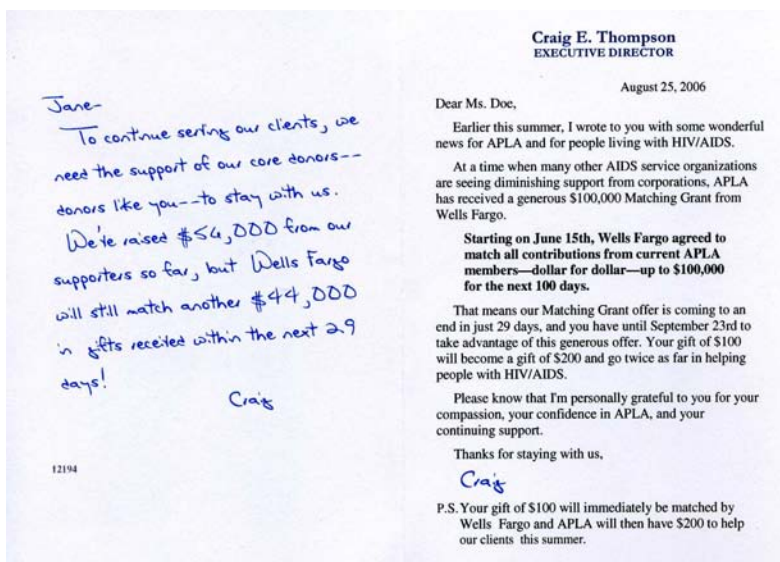 Jane-
To continue serving our clients, we
need the support of our core donors--
donors like you--to stay with us.
We've raised $54,000 from our
supporters so far, but Wells Fargo
will still match another $44,000
in gifts received within the next 29
days!
Craig
12194
Craig E. Thompson
EXECUTIVE DIRECTOR
August 25, 2006
Dear Ms. Doe,
Earlier this summer, I wrote to you with some wonderful
news for APLA and for people living with HIV/AIDS.
At a time when many other AIDS service organizations
are seeing diminishing support from corporations, APLA
has received a generous $100,000 Matching Grant from
Wells Fargo.
Starting on June 15th, Wells Fargo agreed to
match all contributions from current APLA
members—dollar for dollar—up to $100,000
for the next 100 days.
That means our Matching Grant offer is coming to an
end in just 29 days, and you have until September 23rd to
take advantage of this generous offer. Your gift of $100
will become a gift of $200 and go twice as far in helping
people with HIV/AIDS.
Please know that I'm personally grateful to you for your
compassion, your confidence in APLA, and your
continuing support.
Thanks for staying with us,
Craig
P.S. Your gift of $100 will immediately be matched by
Wells Fargo and APLA will then have $200 to help
our clients this summer.